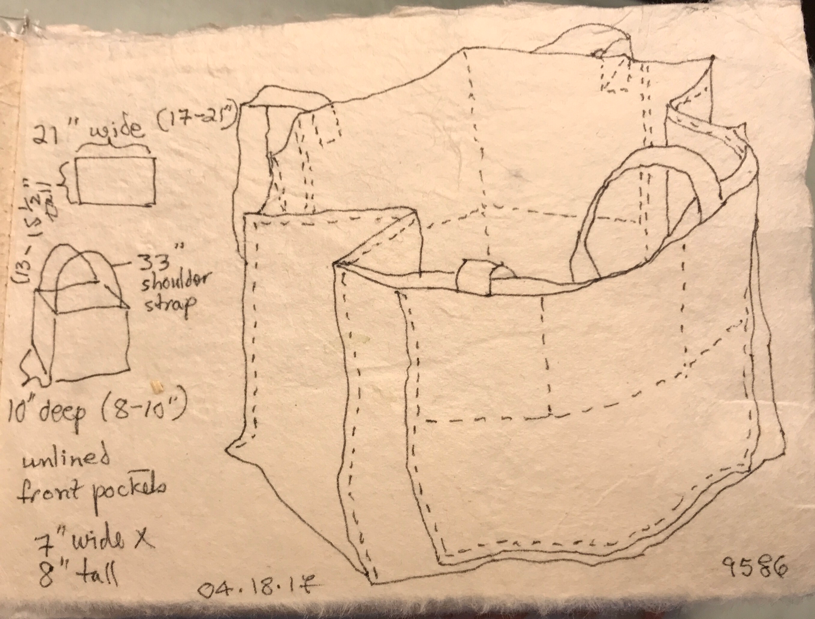 21" wide (17-21")
(13-15½" tall
33"
shoulder
strap
10" deep (8-10")
unlined
front pockets
7" wide x
8" tall
04.18.17
9586